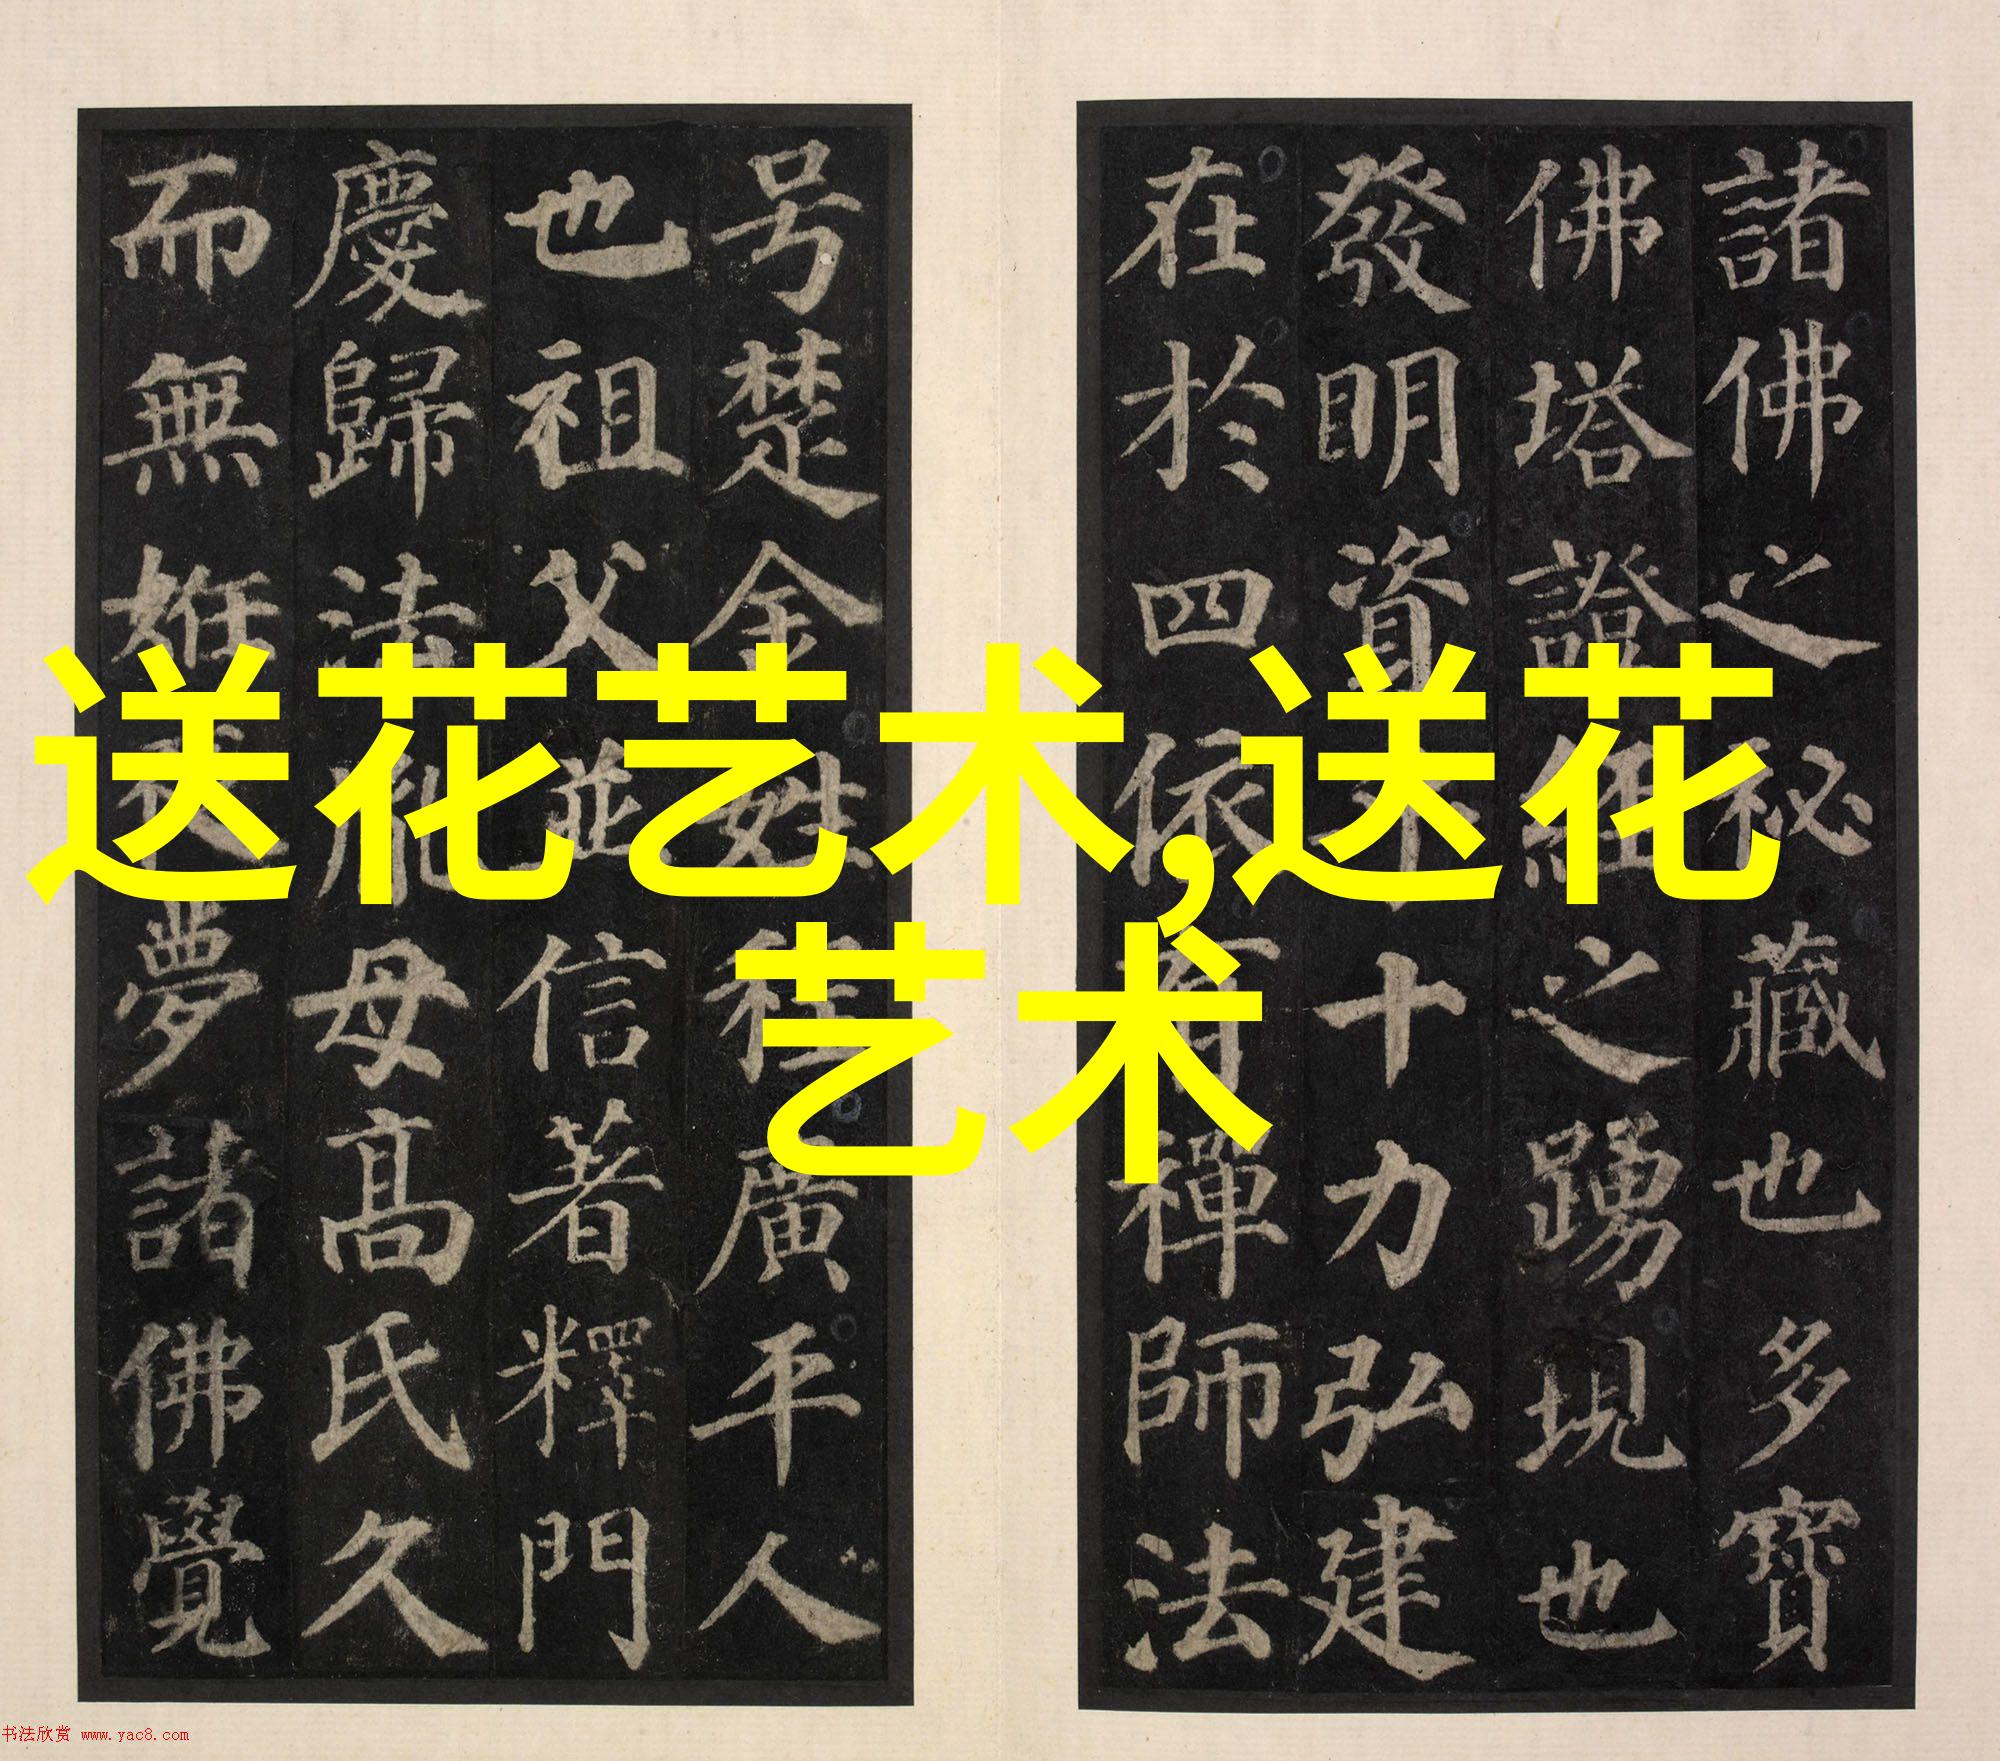 諸佛之祕藏也多寶
佛塔證經之踴現也
發明資乎十力弘建
在於四依有禪師法
号楚金姓程廣平人
也祖父並信著釋門
慶歸法胤母高氏久
而無姙夜夢諸佛覺
送花艺术,送花
艺术
书法欣赏 www.yac8.com